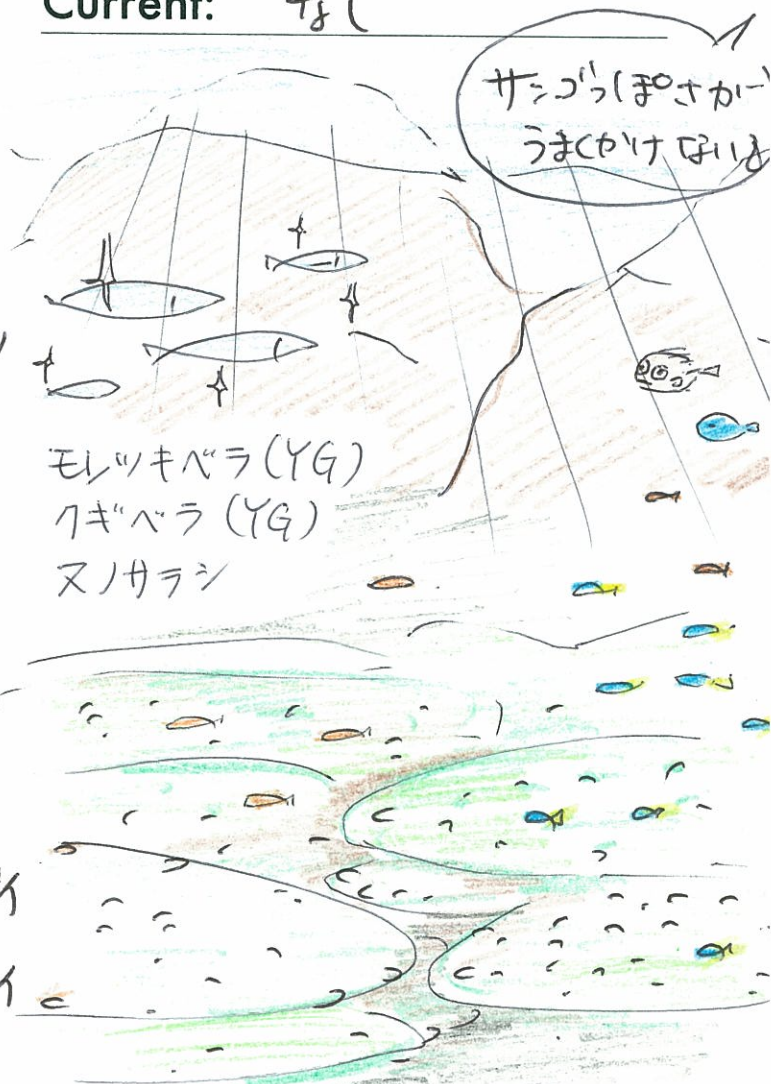 Current: なし
サンゴっぽさがー
うまくかけない
モンツキベラ(YG)
クギベラ(YG)
ヌノサラシ
イ
イ